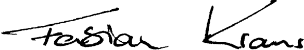 Fabian Kraus